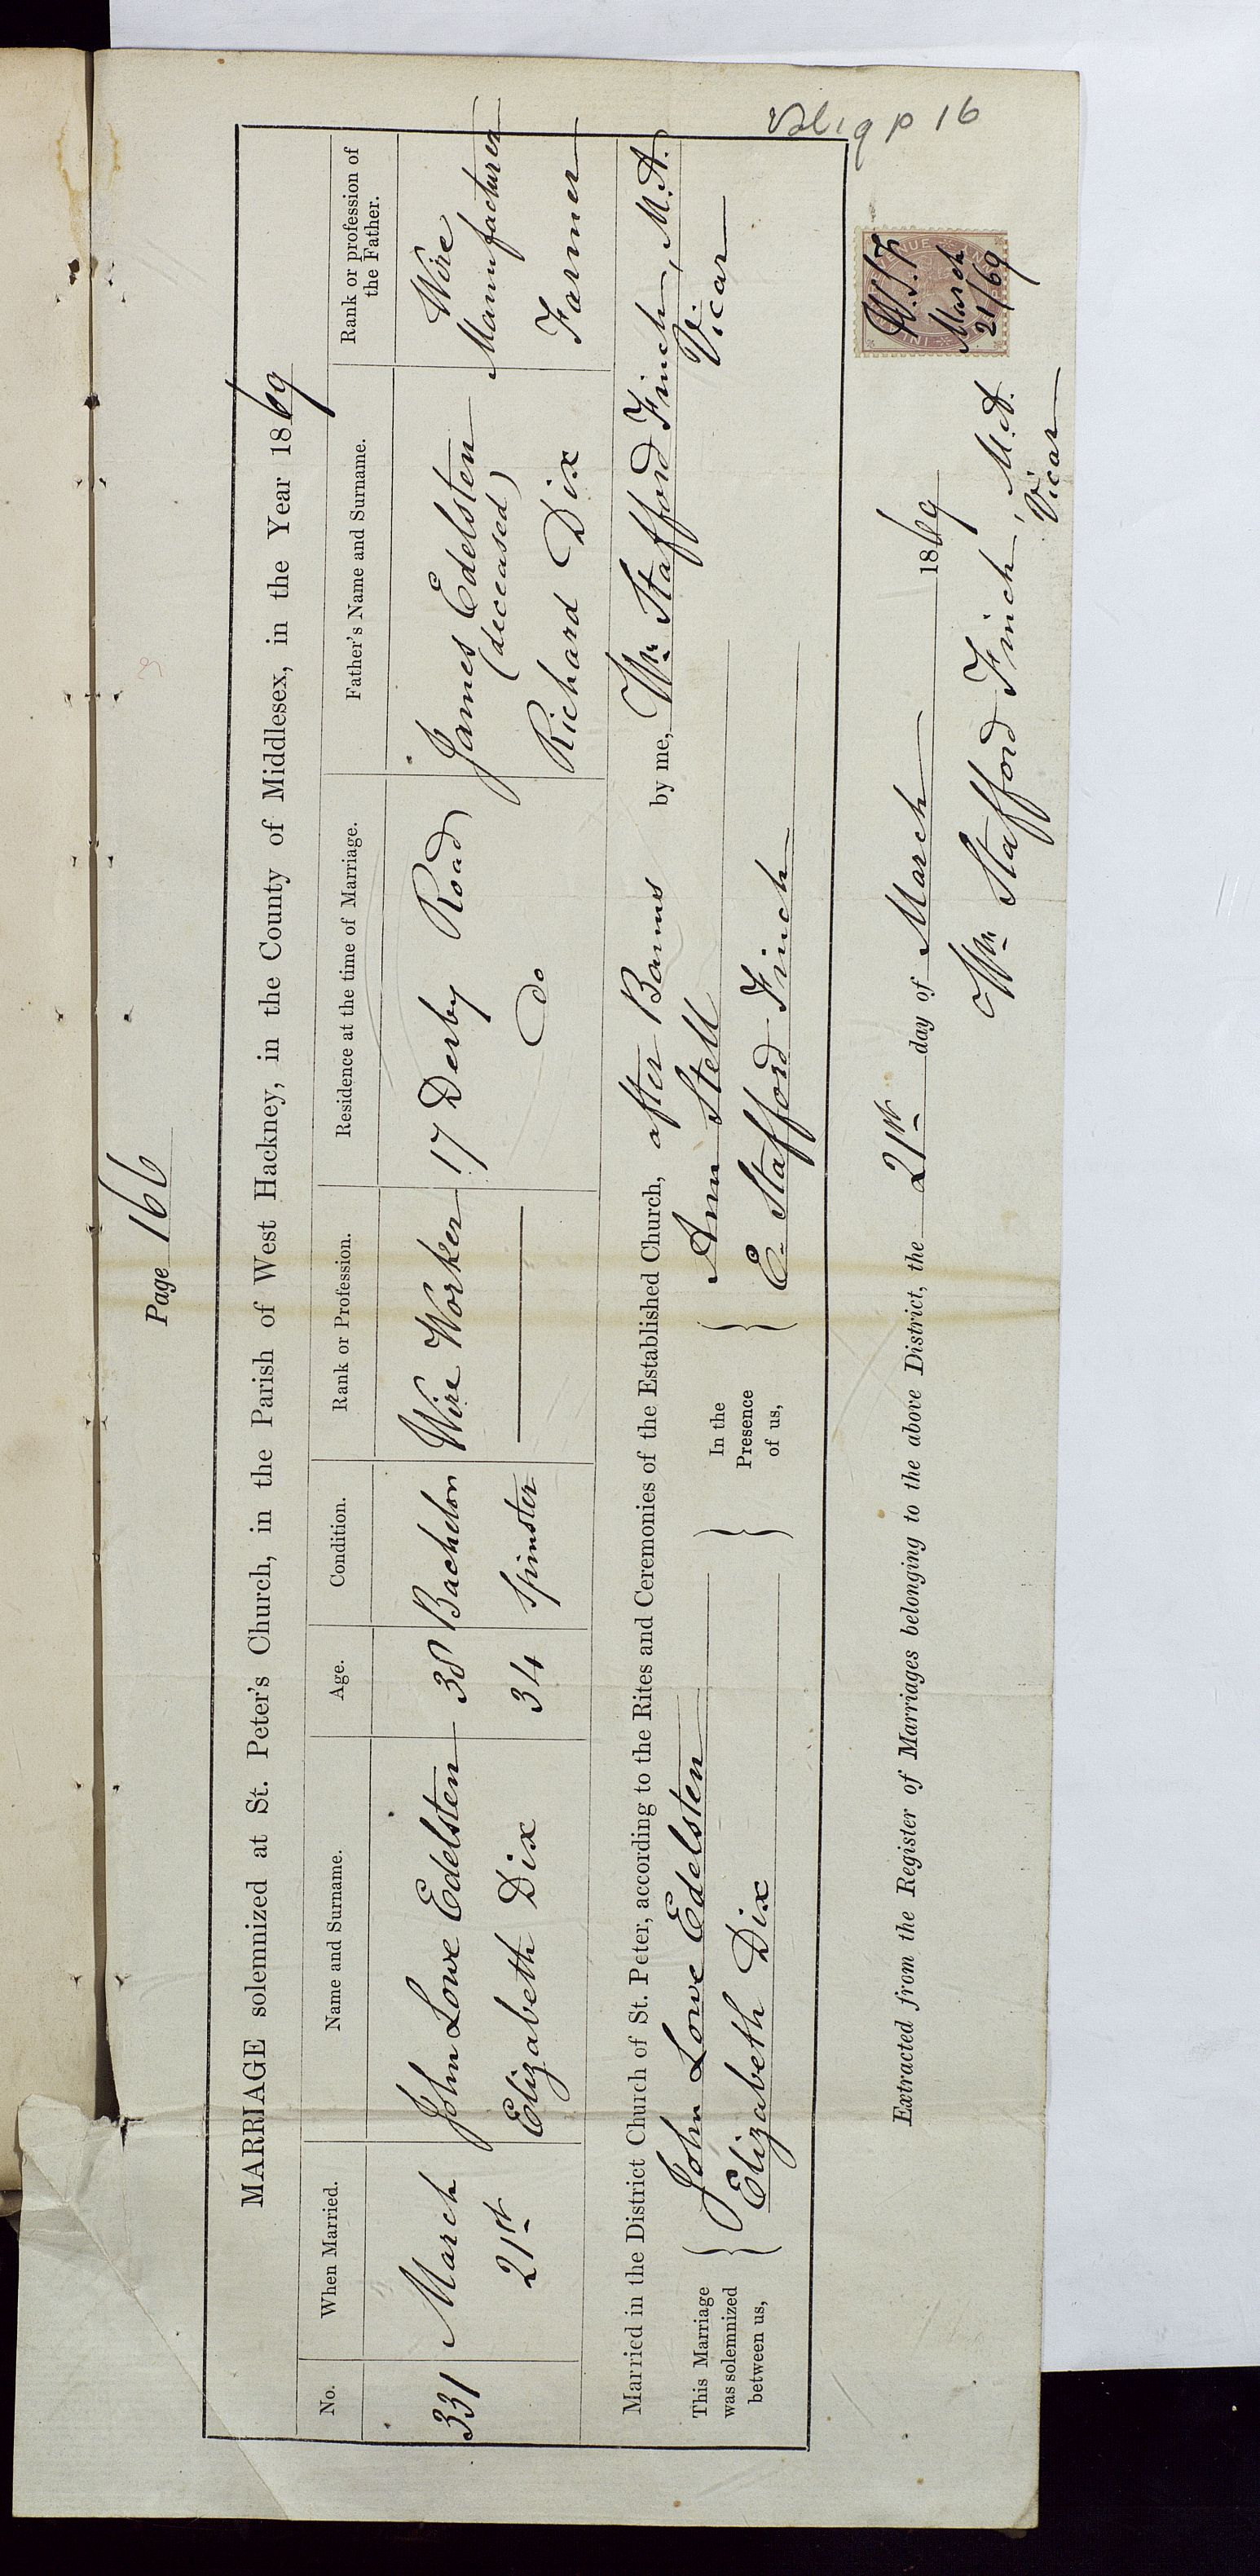 Page 166
MARRIAGE solemnized at St. Peter's Church, in the Parish of West Hackney, in the County of Middlesex, in the Year 1869
No. When Married. Name and Surname. Age. Condition. Rank or Profession. Residence at the time of Marriage. Father's Name and Surname. Rank or profession of the Father.
331 March 21st John Lowe Edelsten 38 Bachelor Wire Worker 17 Derby Road James Edelsten (deceased) Wire Manufacturer
Elizabeth Dix 34 Spinster do Richard Dix Farmer
Married in the District Church of St. Peter, according to the Rites and Ceremonies of the Established Church, after Banns by me, Wm Stafford Finch, M.A. Vicar
This Marriage was solemnized between us, John Lowe Edelsten In the Presence of us, Ann Stell
Elizabeth Dix E. Stafford Finch
Extracted from the Register of Marriages belonging to the above District, the 21st day of March 1869
Wm Stafford Finch, M.A.
Vicar
W.S.F.
March
21/69
p 16